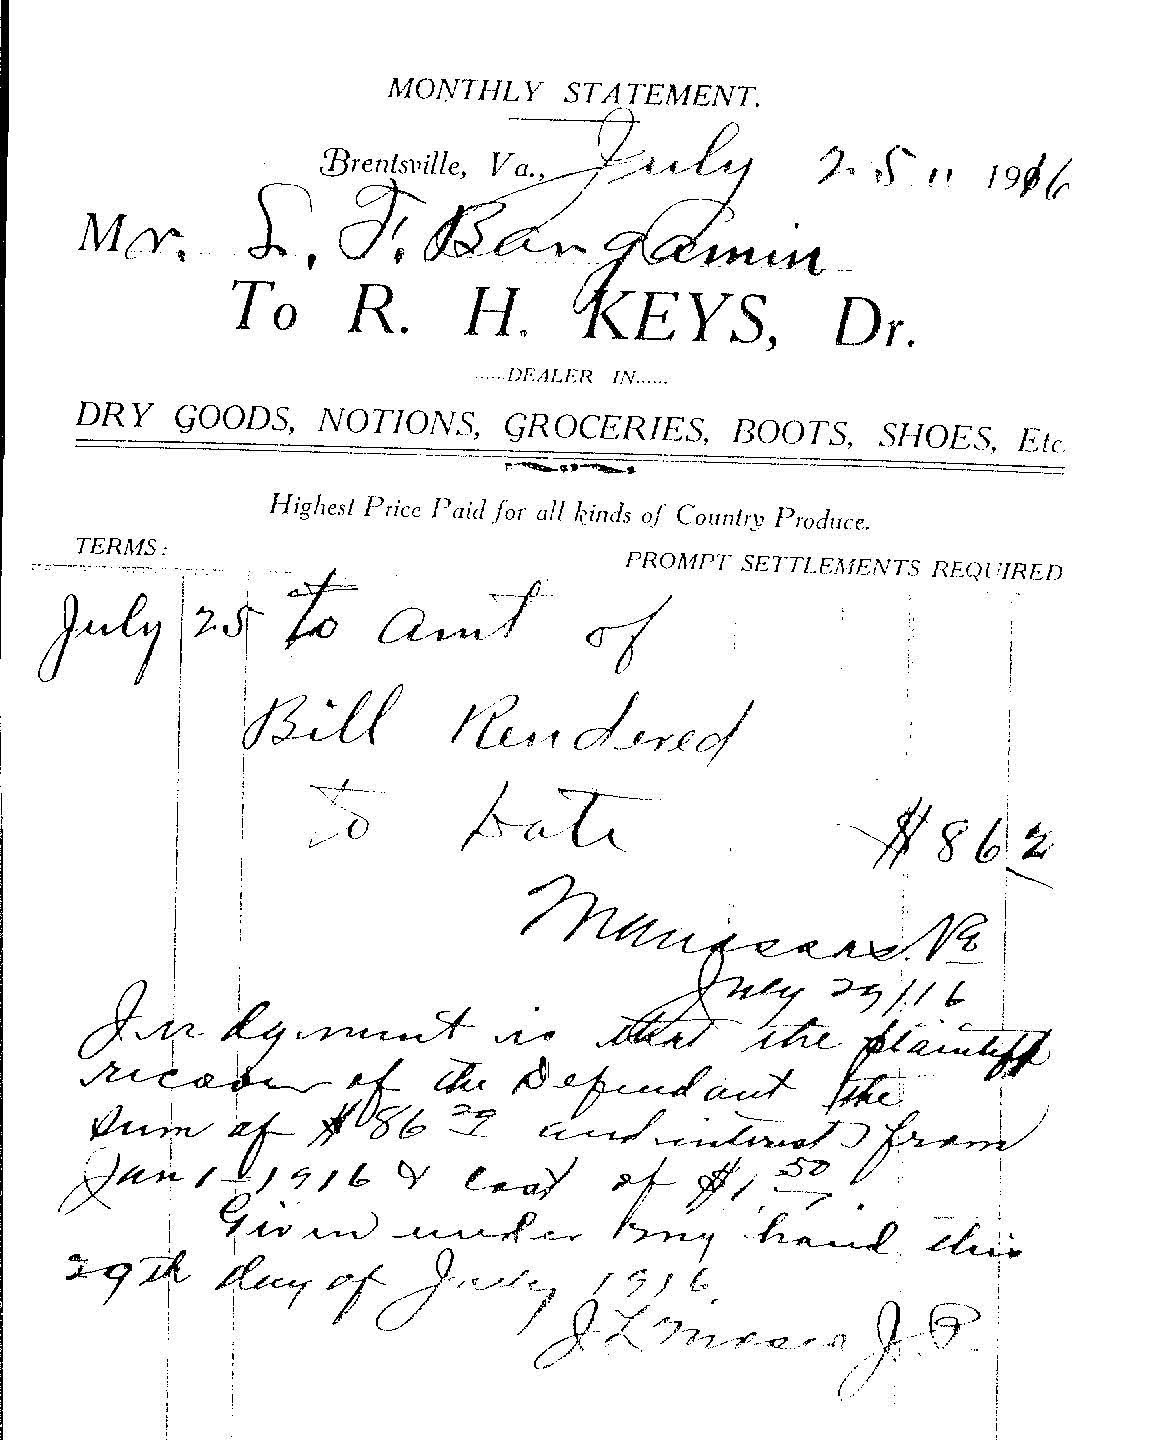 MONTHLY STATEMENT.
Brentsville, Va., July 25 1916
Mr. L. F. Bangamin
To R. H. KEYS, Dr.
......DEALER IN......
DRY GOODS, NOTIONS, GROCERIES, BOOTS, SHOES, Etc.
Highest Price Paid for all kinds of Country Produce.
TERMS: PROMPT SETTLEMENTS REQUIRED
July 25 To amt of
Bill Rendered
to Date $86
Manassas, Va
July 29/16
Judgment is that the plaintiff
recover of the Defendant the
sum of $86 29 and interest from
Jan 1 - 1916 & cost of $1 50
Given under my hand this
29th day of July 1916
J L J. P.